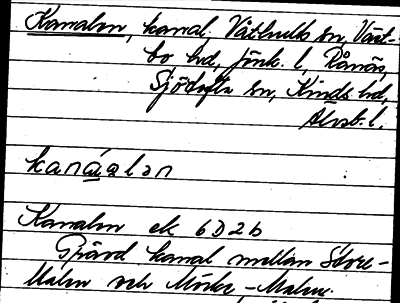 Kanalen, kanal. Våthults sn, Väst-
bo hd, Jönk. l, Rånäs,
Sjötofta sn, Kinds hd,
Älvsb. l.
kanáalən
Kanalen ek 6D2b
Grävd kanal mellan Store-
Malen och Mörke-Malen.